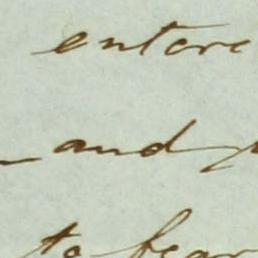 entere
and
to bear